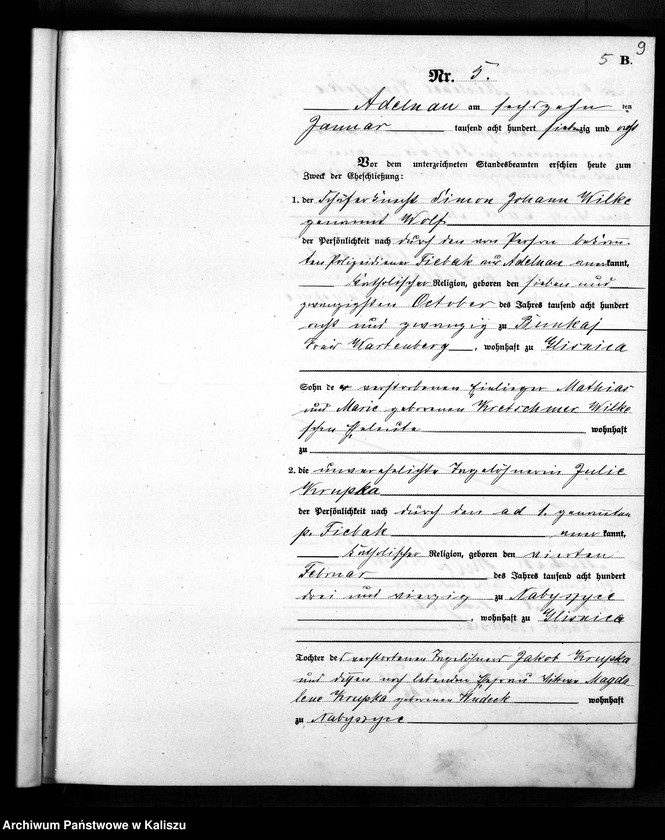 9
5 B.
Nr. 5.
Adelnau am sechszehn ten
Januar tausend acht hundert siebenzig und acht
Vor dem unterzeichneten Standesbeamten erschien heute zum
Zweck der Eheschließung:
1. der Schäferknecht Simon Johann Wilke
genannt Wolf
der Persönlichkeit nach durch den von Person bekann-
ten Polizeidiener Fiebak aus Adelnau anerkannt,
katholischer Religion, geboren den sieben und
zwanzigsten October des Jahres tausend acht hundert
acht und zwanzig zu
Kreis Wartenberg, wohnhaft zu Glisnica
Sohn der verstorbenen Einlieger Mathias
und Marie geborenen Kretschmer Wilke
schen Eheleute wohnhaft
zu
2. die unverehelichte Tagelöhnerin Julie
Krupka
der Persönlichkeit nach durch den ad 1. genannten
p. Fiebak anerkannt,
katholischer Religion, geboren den vierten
Februar des Jahres tausend acht hundert
drei und vierzig zu Nabyszyce
, wohnhaft zu Glisnica
Tochter des verstorbenen Tagelöhners Jakob Krupka
und dessen noch lebenden Ehefrau Magda
lene Krupka geborenen wohnhaft
zu Nabyszyce
Archiwum Państwowe w Kaliszu